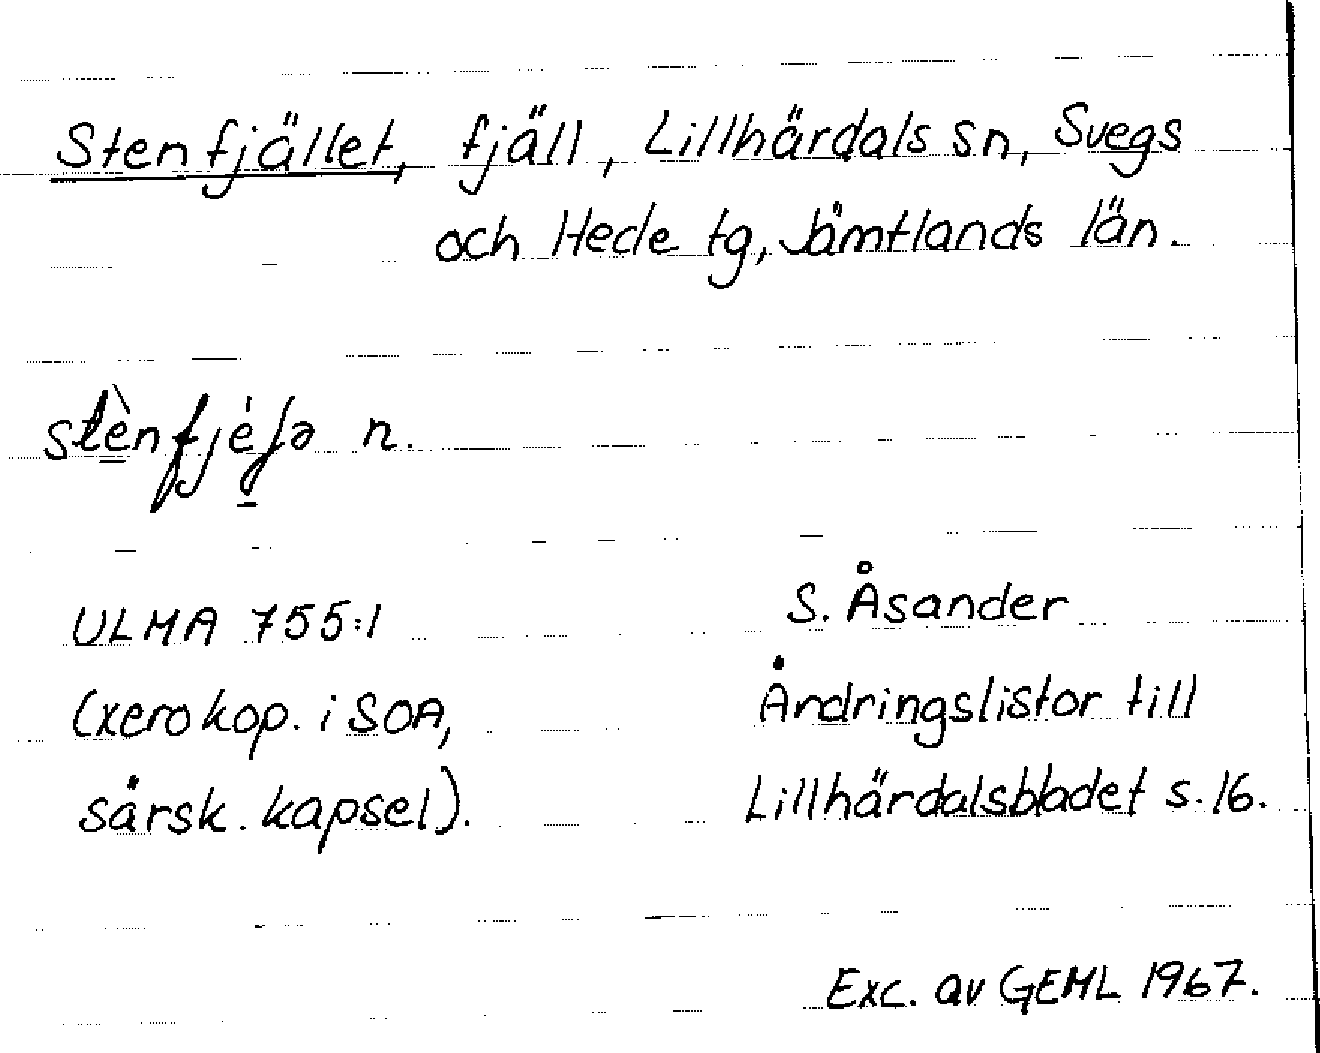 Stenfjället, fjäll, Lillhärdals sn, Svegs
och Hede tg, Jämtlands län.
n.
ULMA 755:1
S. Åsander
(xerokop. i SOA,
Ändringslistor till
särsk. kapsel).
Lillhärdalsbladet s. 16.
Exc. av GEML 1967.